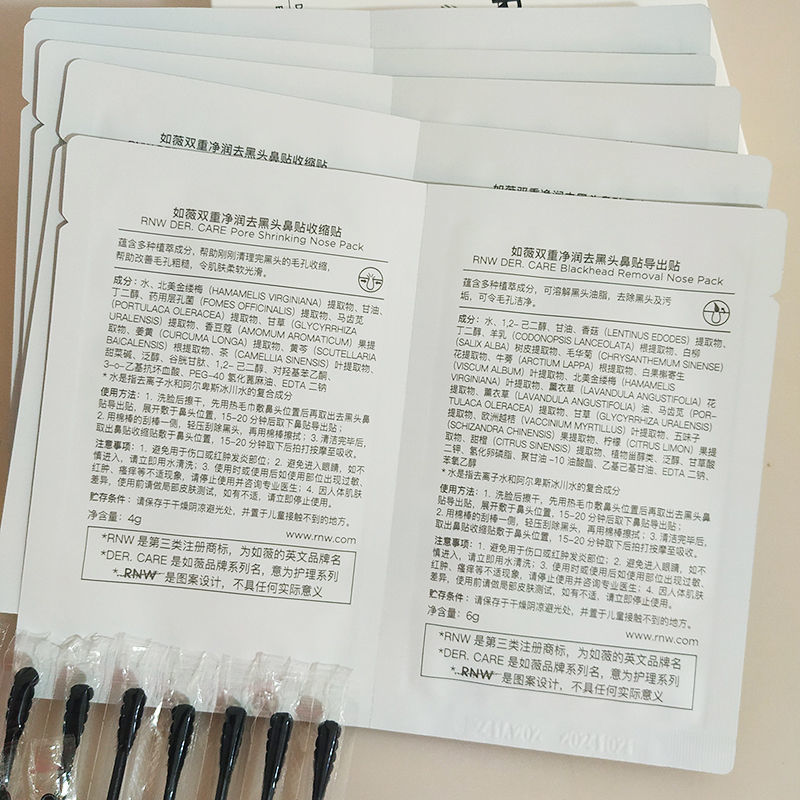 如薇双重净润去黑头鼻贴收缩贴
如薇双重净润去黑头鼻贴收缩贴
RNW DER. CARE Pore Shrinking Nose Pack
蕴含多种植萃成分，帮助刚刚清理完黑头的毛孔收缩，
帮助改善毛孔粗糙，令肌肤柔软光滑。
成分：水、北美金缕梅 (HAMAMELIS VIRGINIANA) 提取物、甘油、
丁二醇、药用层孔菌 (FOMES OFFICINALIS) 提取物、马齿苋
(PORTULACA OLERACEA) 提取物、甘草 (GLYCYRRHIZA
URALENSIS) 提取物、香豆蔻 (AMOMUM AROMATICUM) 果提
取物、姜黄 (CURCUMA LONGA) 提取物、黄芩 (SCUTELLARIA
BAICALENSIS) 根提取物、茶 (CAMELLIA SINENSIS) 叶提取物、
甜菜碱、泛醇、谷胱甘肽、1,2-己二醇、对羟基苯乙酮、
3-o-乙基抗坏血酸、PEG-40 氢化蓖麻油、EDTA 二钠
* 水是指去离子水和阿尔卑斯冰川水的复合成分
使用方法：1. 洗脸后擦干，先用热毛巾敷鼻头位置后再取出去黑头鼻
贴导出贴，展开敷于鼻头位置，15-20 分钟后取下鼻贴导出贴；
2. 用棉棒的刮棒一侧，轻压刮除黑头，再用棉棒擦拭；3. 清洁完毕后，
取出鼻贴收缩贴敷于鼻头位置，15-20 分钟取下后拍打按摩至吸收。
注意事项：1. 避免用于伤口或红肿发炎部位；2. 避免进入眼睛，如不
慎进入，请立即用水清洗；3. 使用时或使用后如使用部位出现过敏、
红肿、瘙痒等不适现象，请停止使用并咨询专业医生；4. 因人体肌肤
差异，使用前请做局部皮肤测试，如有不适，请立即停止使用。
贮存条件：请保存于干燥阴凉避光处，并置于儿童接触不到的地方。
净含量：4g
www.rnw.com
*RNW 是第三类注册商标，为如薇的英文品牌名
*DER. CARE 是如薇品牌系列名，意为护理系列
* RNW 是图案设计，不具任何实际意义
如薇双重净润去黑头鼻贴导出贴
RNW DER. CARE Blackhead Removal Nose Pack
蕴含多种植萃成分，可溶解黑头油脂，去除黑头及污
垢，可令毛孔洁净。
成分：水、1,2-己二醇、甘油、香菇 (LENTINUS EDODES) 提取物、
丁二醇、羊乳 (CODONOPSIS LANCEOLATA) 根提取物、白柳
(SALIX ALBA) 树皮提取物、毛华菊 (CHRYSANTHEMUM SINENSE)
花提取物、牛蒡 (ARCTIUM LAPPA) 根提取物、白果槲寄生
(VISCUM ALBUM) 叶提取物、北美金缕梅 (HAMAMELIS
VIRGINIANA) 叶提取物、薰衣草 (LAVANDULA ANGUSTIFOLIA) 花
提取物、薰衣草 (LAVANDULA ANGUSTIFOLIA) 油、马齿苋 (POR-
TULACA OLERACEA) 提取物、甘草 (GLYCYRRHIZA URALENSIS)
提取物、欧洲越桔 (VACCINIUM MYRTILLUS) 叶提取物、五味子
(SCHIZANDRA CHINENSIS) 果提取物、柠檬 (CITRUS LIMON) 果提
取物、甜橙 (CITRUS SINENSIS) 提取物、植物甾醇类、泛醇、甘草酸
二钾、氢化卵磷脂、聚甘油-10 油酸酯、乙基己基甘油、EDTA 二钠、
苯氧乙醇
* 水是指去离子水和阿尔卑斯冰川水的复合成分
使用方法：1. 洗脸后擦干，先用热毛巾敷鼻头位置后再取出去黑头鼻
贴导出贴，展开敷于鼻头位置，15-20 分钟后取下鼻贴导出贴；
2. 用棉棒的刮棒一侧，轻压刮除黑头，再用棉棒擦拭；3. 清洁完毕后，
取出鼻贴收缩贴敷于鼻头位置，15-20 分钟取下后拍打按摩至吸收。
注意事项：1. 避免用于伤口或红肿发炎部位；2. 避免进入眼睛，如不
慎进入，请立即用水清洗；3. 使用时或使用后如使用部位出现过敏、
红肿、瘙痒等不适现象，请停止使用并咨询专业医生；4. 因人体肌肤
差异，使用前请做局部皮肤测试，如有不适，请立即停止使用。
贮存条件：请保存于干燥阴凉避光处，并置于儿童接触不到的地方。
净含量：6g
www.rnw.com
*RNW 是第三类注册商标，为如薇的英文品牌名
*DER. CARE 是如薇品牌系列名，意为护理系列
* RNW 是图案设计，不具任何实际意义
241A202 20241021